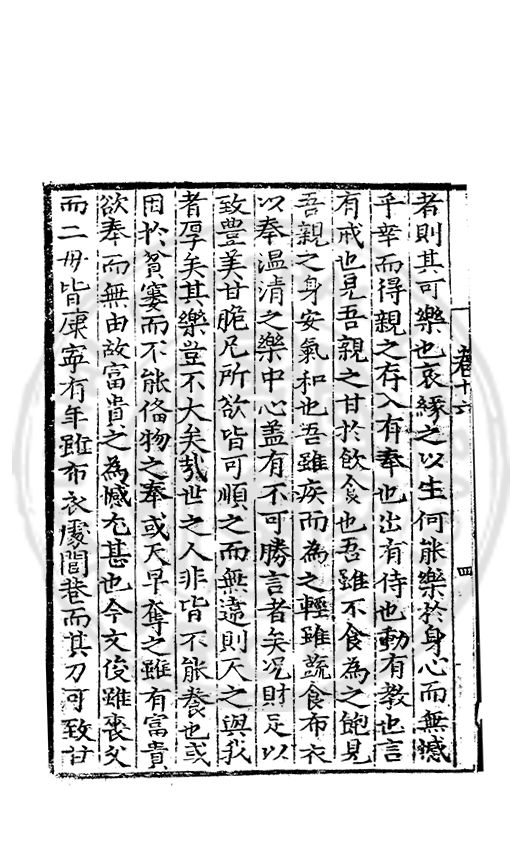 卷十六
四
者則其可樂也哀緣之以生何能樂於身心而無憾
乎幸而得親之存入有奉也出有侍也動有教也言
有戒也見吾親之甘於飲食也吾雖不食為之飽見
吾親之身安氣和也吾雖疾而為之輕雖蔬食布衣
以奉温清之樂中心盖有不可勝言者矣况財足以
致豊美甘脆凡所欲皆可順之而無違則天之與我
者厚矣其樂豈不大矣哉世之人非皆不能養也或
困於貧窶而不能俻物之奉或天早奪之雖有富貴
欲奉而無由故富貴之為憾尤甚也今文俊雖喪父
而二母皆康寧有年雖布衣處閭巷而其力可致甘